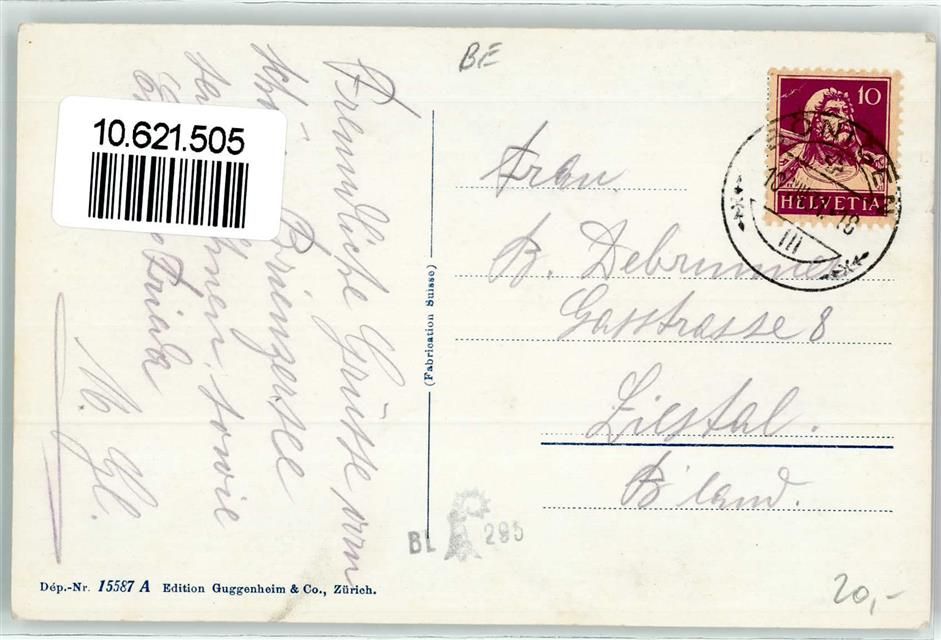 BE
10.621.505
10
HELVETIA
Freundliche Grüsse vom
Brienzersee
sowie
Frieda
M. 
Frau.
B. Debrunner
Gasstrasse 8
Liestal.
B'land.
(Fabrication Suisse)
BL 295
Dép.-Nr. 15587 A Edition Guggenheim & Co., Zürich.
20,-